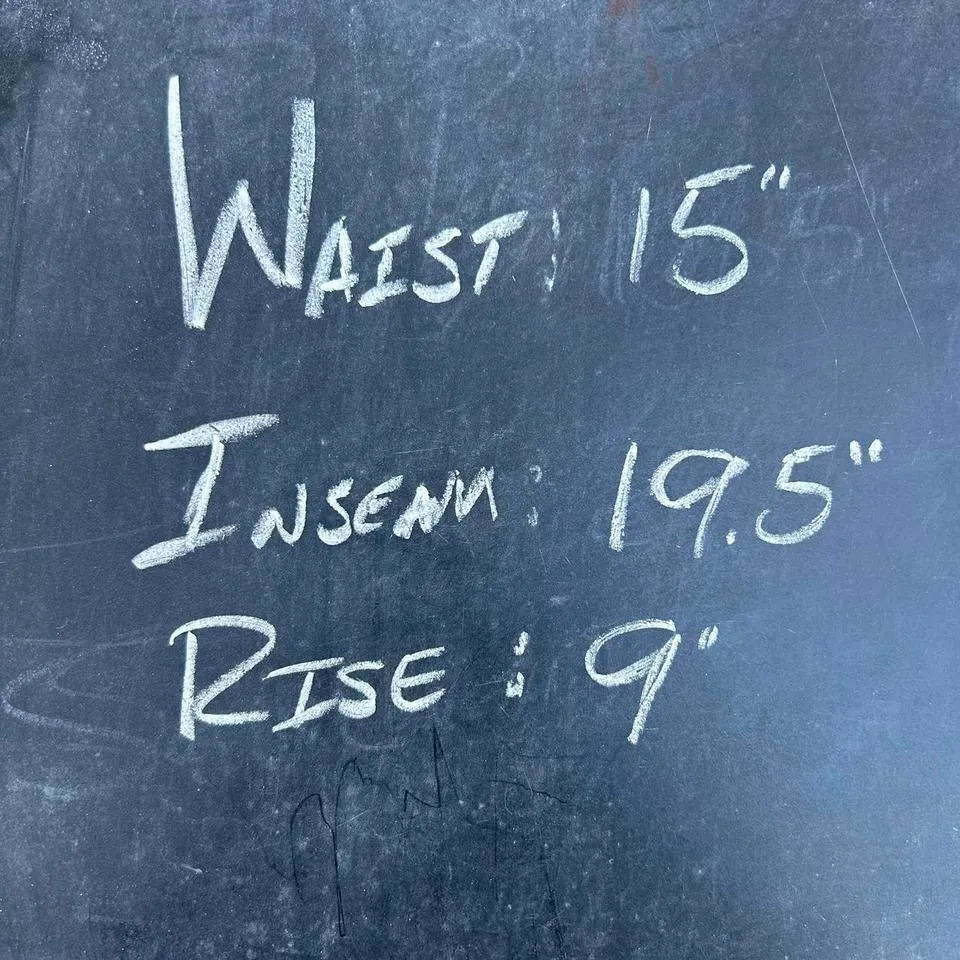 WAIST: 15"
INSEAM: 19.5"
RISE: 9"